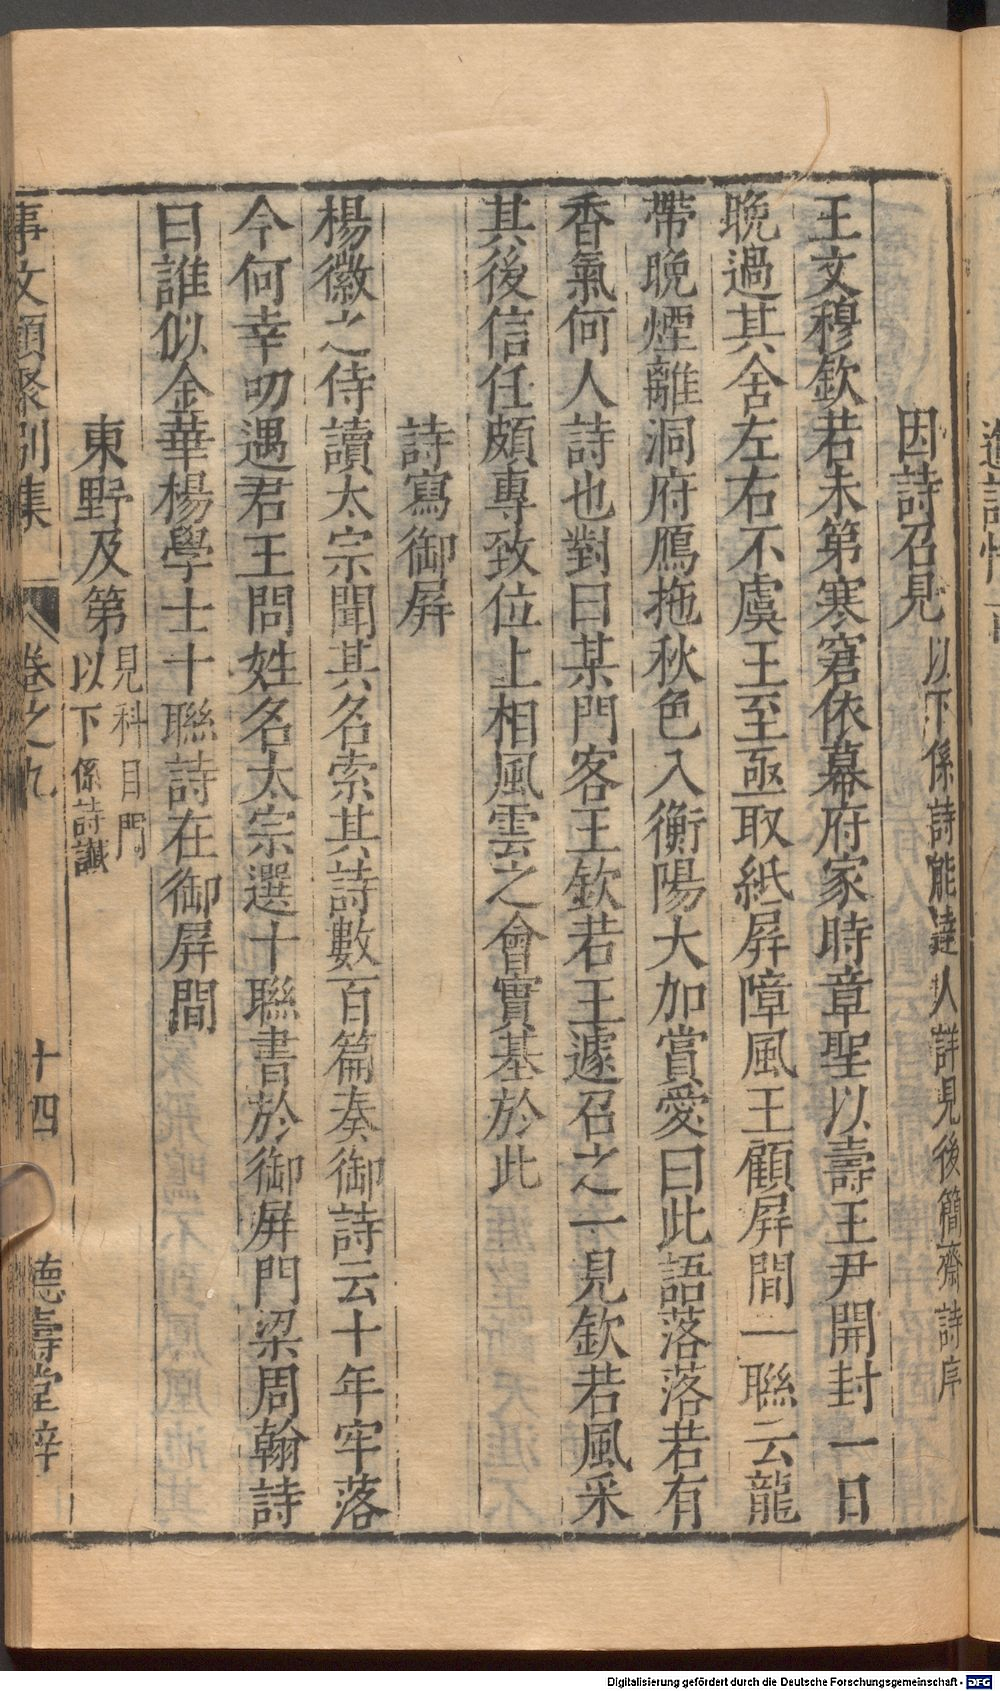 因詩召見以下係詩能達人詳見後簡齋詩序
王文穆欽若未第寒窘依幕府家時章聖以壽王尹開封一日
晚過其舍左右不虞王至亟取紙屏障風王顧屏間一聯云龍
帶晚煙離洞府鴈拖秋色入衡陽大加賞愛曰此語落落若有
香氣何人詩也對曰某門客王欽若王遽召之一見欽若風采
其後信任頗專致位上相風雲之會實基於此
詩寫御屏
楊徽之侍讀太宗聞其名索其詩數百篇奏御詩云十年牢落
今何幸叨遇君王問姓名太宗選十聯書於御屏門梁周翰詩
曰誰似金華楊學士十聯詩在御屏間
東野及第見科目門以下係詩讖
事文類聚別集 卷之九 十四 德壽堂梓
Digitalisierung gefördert durch die Deutsche Forschungsgemeinschaft - DFG